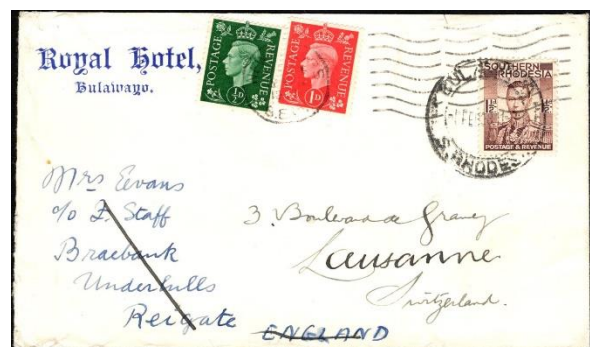 Royal Hotel,
Bulawayo.
POSTAGE REVENUE
½D
POSTAGE REVENUE
1D
SOUTHERN
RHODESIA
1½ 1½
POSTAGE & REVENUE
S. RHODESIA
Mrs Eevans
c/o Staff
Braebank
Underhills
Reigate
ENGLAND
3. Boulevard de Grancy
Lausanne
Switzerland.